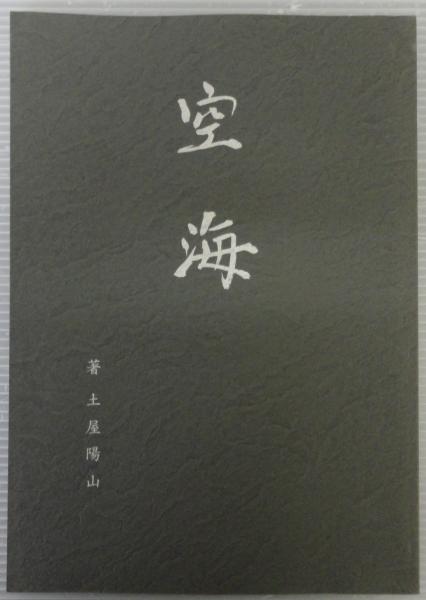 空海
著 土屋陽山